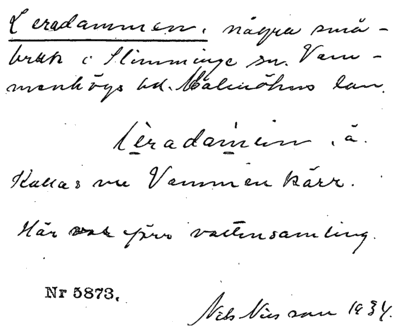 Leradammen, några små-
bruk i Slimminge sn. Vem-
menhögs hd. Malmöhus län.
lèradamen, å.
Kallas nu Dammen kärr.
Här var förr vattensamling.
Nr 5873.
Nels Nilsson 1934.